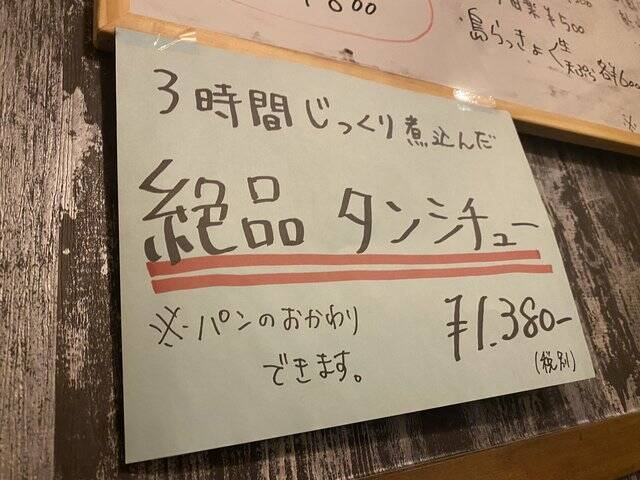 ¥500
・島らっきょ<生 天ぷら 各¥600
3時間じっくり煮込んだ
絶品 タンシチュー
※パンのおかわり
できます。
¥1.380-
(税別)